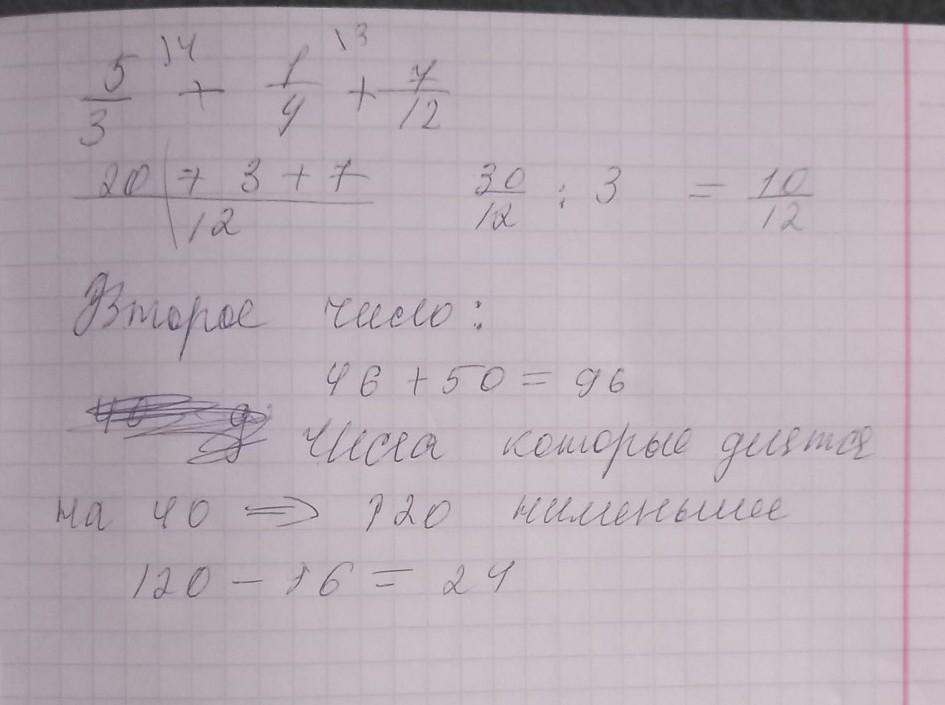 5/3 \4 + 1/4 \3 + 7/12
20 + 3 + 7 / 12   30/12 : 3 = 10/12
Второе число:
46 + 50 = 96
Числа которые делятся
на 40 => 120 наименьшее
120 - 96 = 24